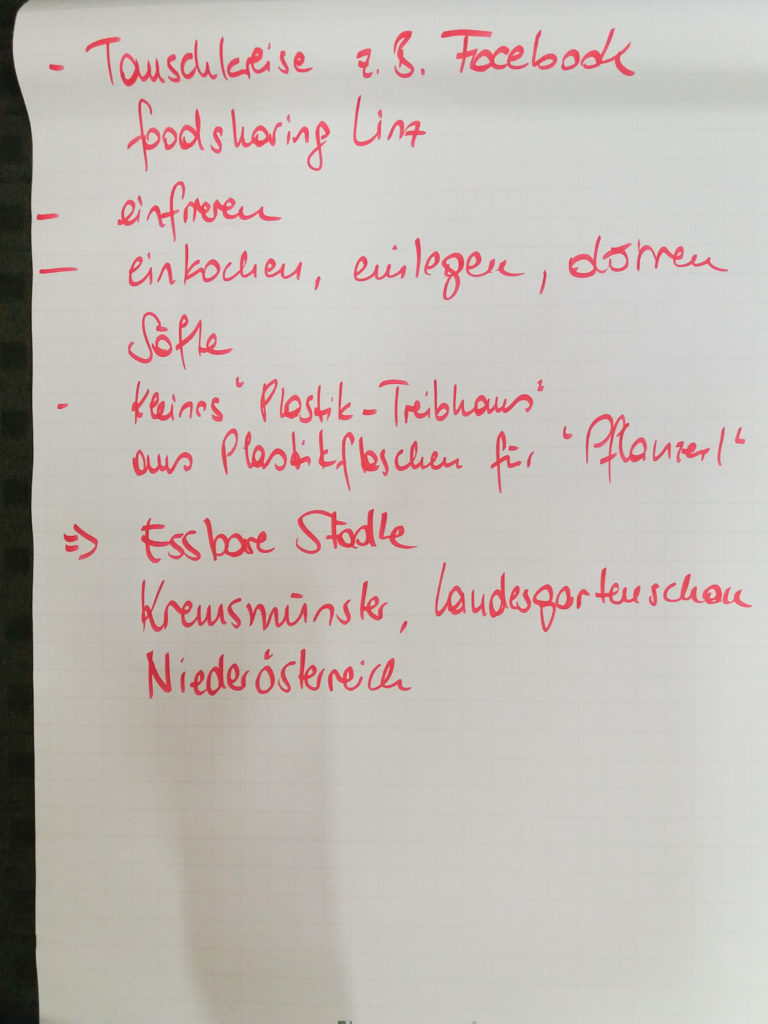 - Tauschkreise z.B. Facebook
foodsharing Linz
- einfrieren
- einkochen, einlegen, dörren
Säfte
- kleines "Plastik-Treibhaus"
aus Plastikflaschen für "Pflanzerl"
=> Essbare Städte
Kremsmünster, Landesgartenschau
Niederösterreich